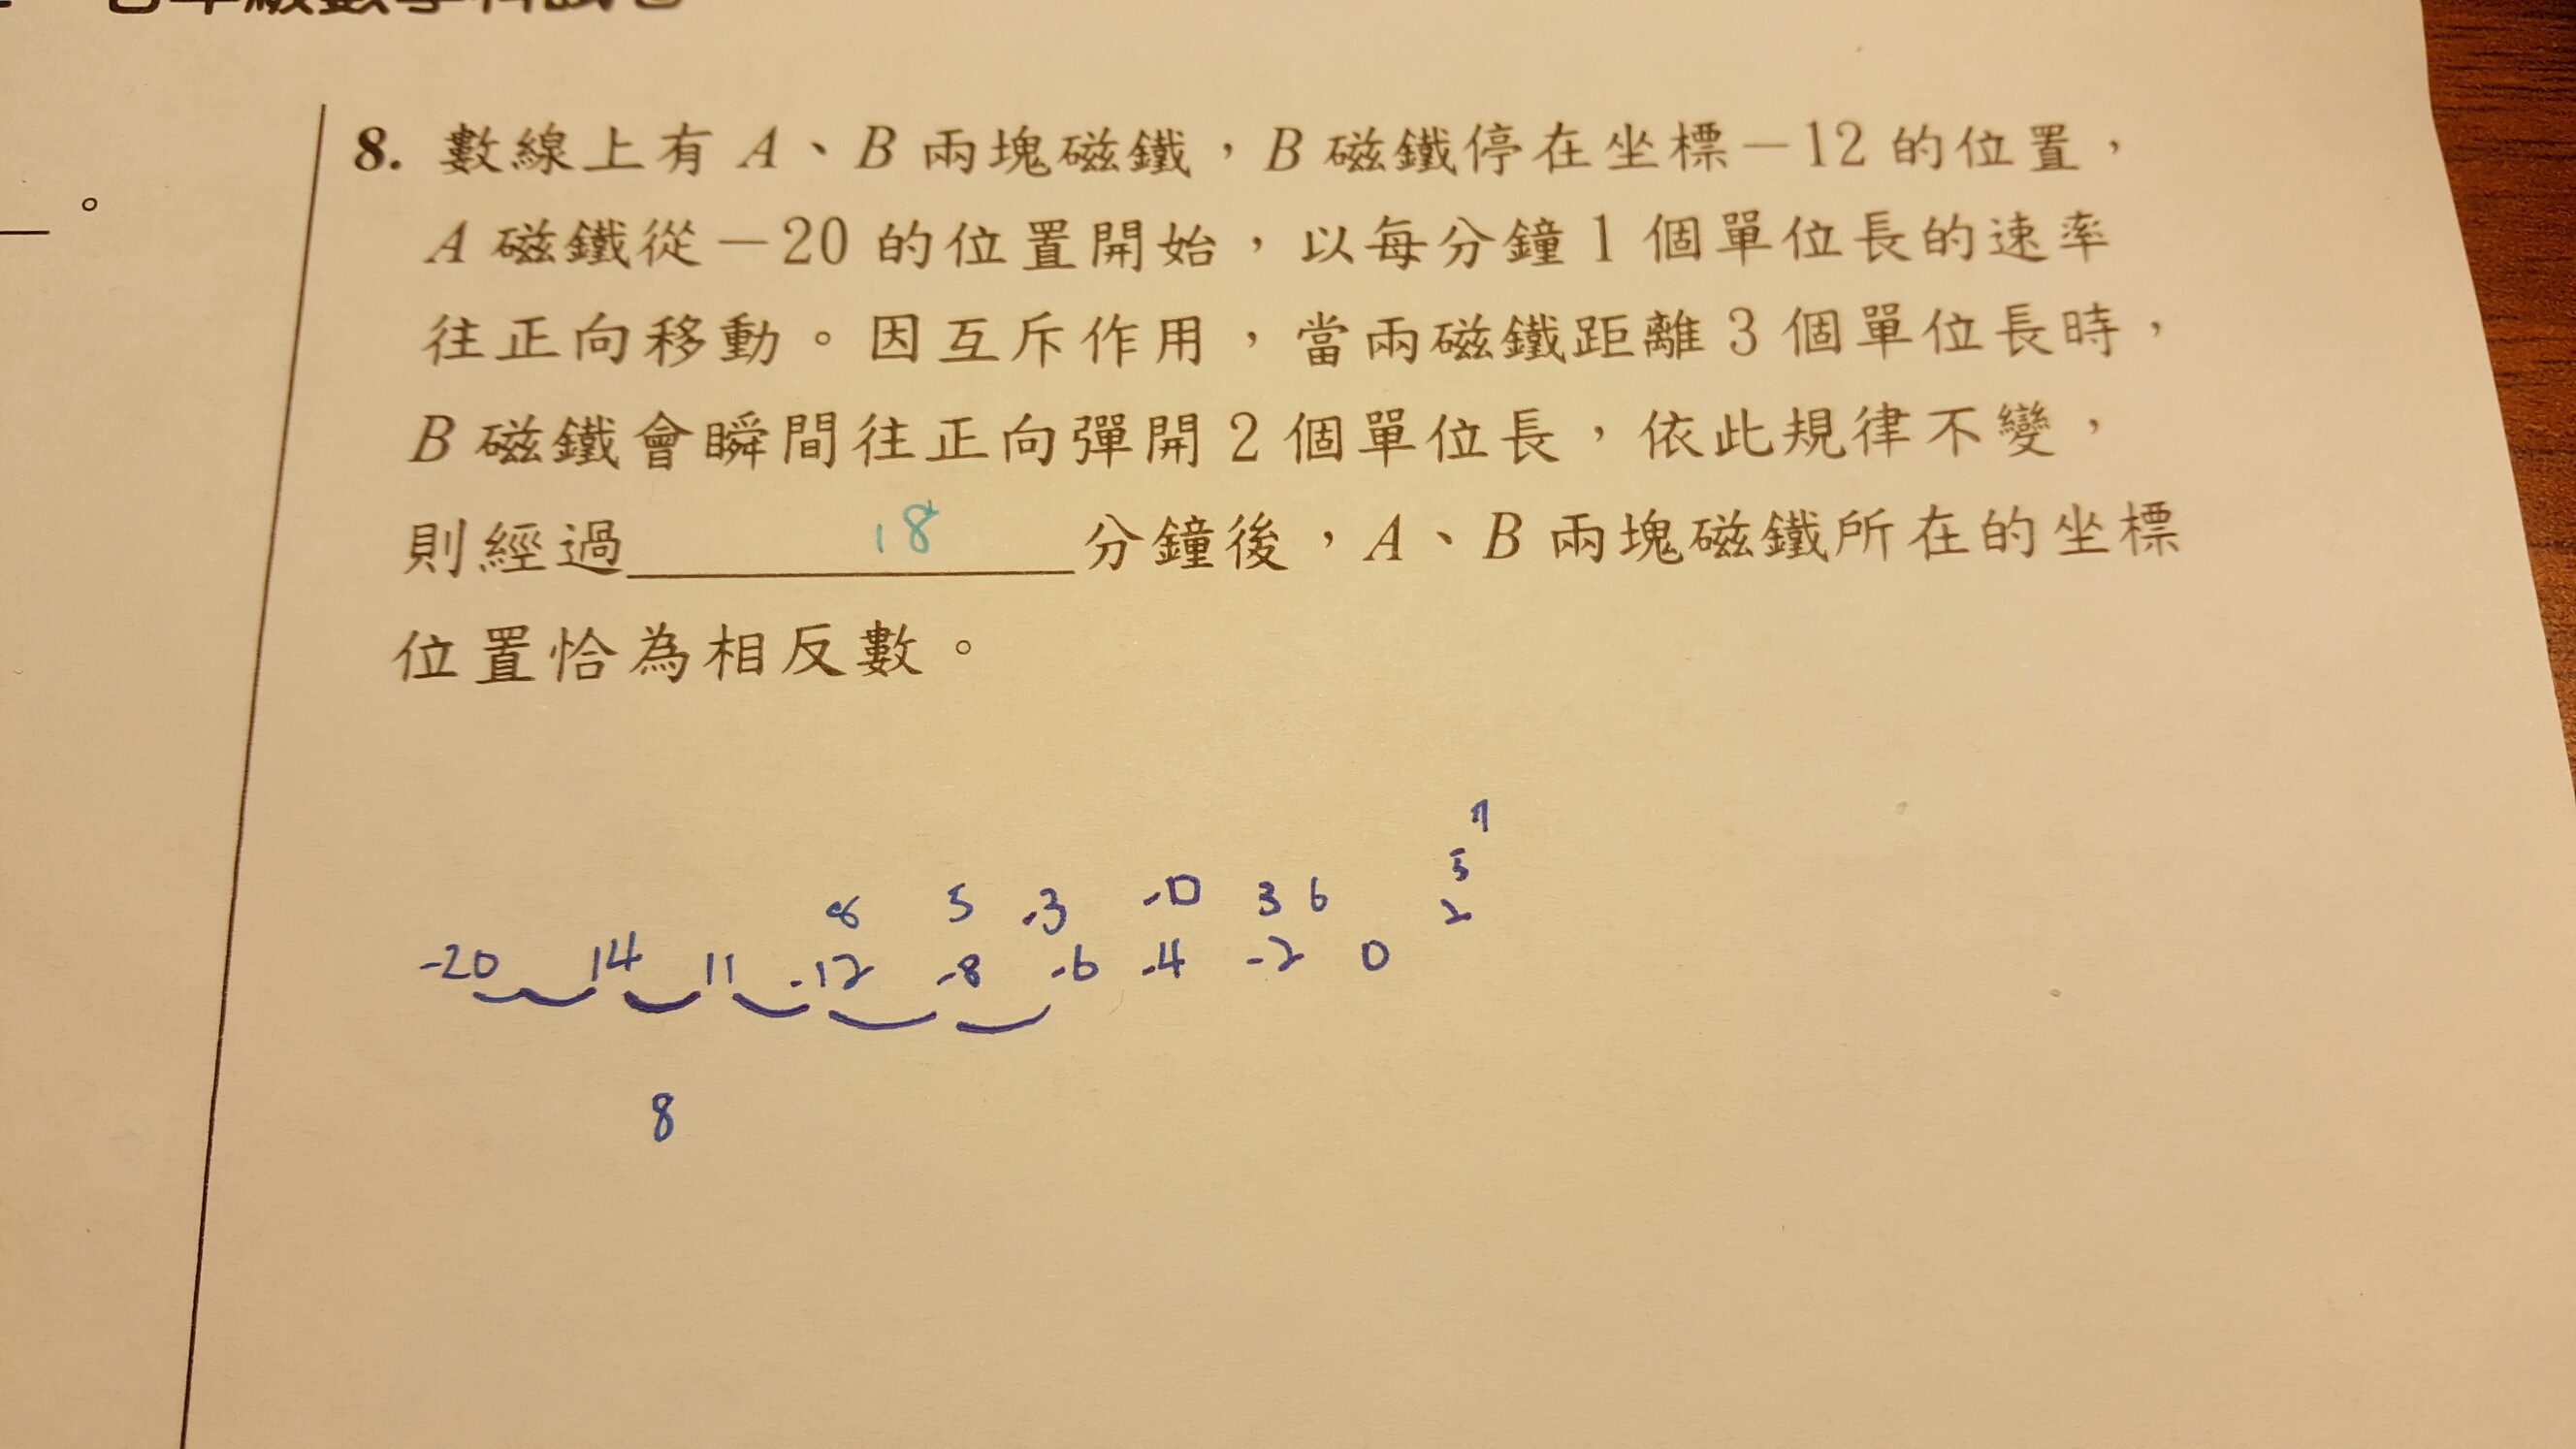 七年級數學科試卷
。
8. 數線上有 A、B 兩塊磁鐵，B 磁鐵停在坐標－12 的位置，
A 磁鐵從－20 的位置開始，以每分鐘 1 個單位長的速率
往正向移動。因互斥作用，當兩磁鐵距離 3 個單位長時，
B 磁鐵會瞬間往正向彈開 2 個單位長，依此規律不變，
則經過 18 分鐘後，A、B 兩塊磁鐵所在的坐標
位置恰為相反數。
5
8 5 -3 3 6 2
-20 14 11 -12 -8 -6 -4 -2 0
8